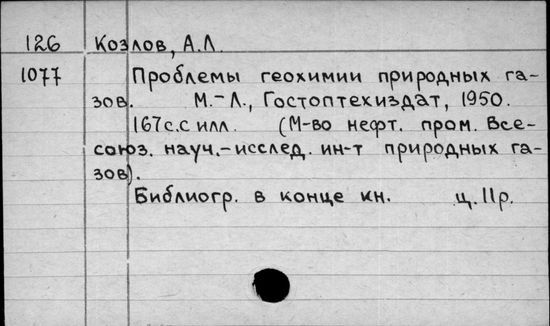 126 Козлов, А.Л.
1077 Проблемы геохимии природных га-
зов. М.-Л., Гостоптехиздат, 1950.
167с.с илл. (М-во нефт. пром. Все-
союз. науч.-исслед. ин-т природных га-
зов).
Библиогр. в конце кн. ц. 11р.